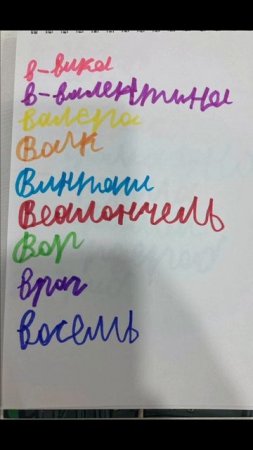 в-вика
в-валентина
валера
Валк
Винтаи
Веалончель
Вор
врач
восемь